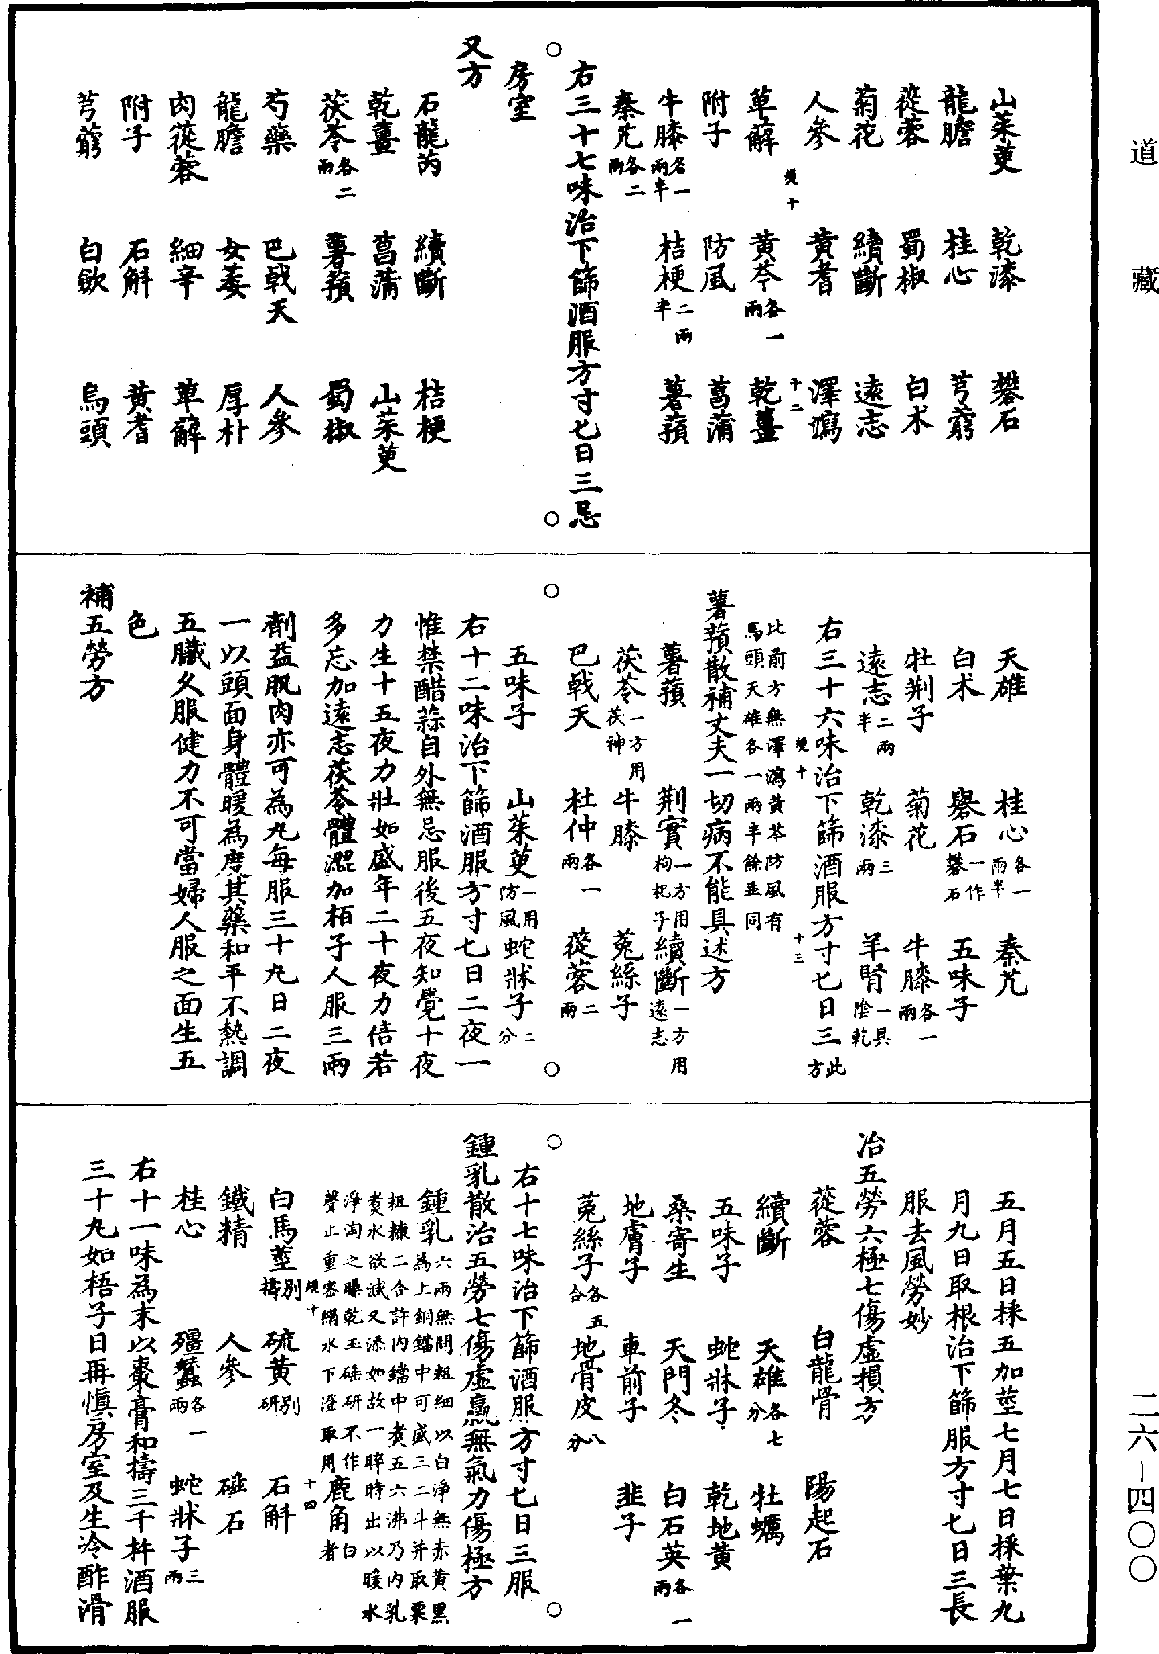 道藏
二六—四〇〇
山茱萸　乾漆　礬石
龍膽　桂心　芎藭
蓯蓉　蜀椒　白朮
菊花　續斷　遠志
人參　黃耆　澤瀉
萆薢　黃芩各一兩　乾薑
附子　防風　菖蒲
牛膝各一兩半　桔梗二兩半　薯蕷
秦艽各二兩
右三十七味治下篩酒服方寸匕日三忌
房室
又方
石龍芮　續斷　桔梗
乾薑　菖蒲　山茱萸
茯苓各二兩　薯蕷　蜀椒
芍藥　巴戟天　人參
龍膽　女萎　厚朴
肉蓯蓉　細辛　萆薢
附子　石斛　黃耆
芎藭　白歛　烏頭
天雄　桂心各一兩半　秦艽
白朮　礜石一作礬石　五味子
牡荆子　菊花　牛膝各一兩
遠志二兩半　乾漆三兩　羊腎一具陰乾
右三十六味治下篩酒服方寸匕日三此方
比前方無澤瀉黃芩防風有
烏頭天雄各一兩半餘並同
薯蕷散補丈夫一切病不能具述方
薯蕷　荆實一方用枸杞子　續斷一方用遠志
茯苓一方用茯神　牛膝　菟絲子
巴戟天　杜仲各一兩　蓯蓉二兩
五味子　山茱萸一用防風　蛇牀子二分
右十二味治下篩酒服方寸匕日二夜一
惟禁醋蒜自外無忌服後五夜知覺十夜
力生十五夜力壯如盛年二十夜力倍若
多忘加遠志茯苓體澀加栢子人服三兩
劑益肌肉亦可為丸每服三十丸日二夜
一以頭面身體暖為度其藥和平不熱調
五臟久服健力不可當婦人服之面生五
色
補五勞方
五月五日採五加莖七月七日採葉九
月九日取根治下篩服方寸匕日三長
服去風勞妙
治五勞六極七傷虛損方
蓯蓉　白龍骨　陽起石
續斷　天雄各七分　牡蠣
五味子　蛇牀子　乾地黃
桑寄生　天門冬　白石英各一兩
地膚子　車前子　韭子
菟絲子各五合　地骨皮八分
右十七味治下篩酒服方寸匕日三服
鍾乳散治五勞七傷虛羸無氣力傷極方
鍾乳六兩無問粗細以白淨無赤黃黑
為上銅鐺中可盛三二斗并取粟
粗糠二合許内鐺中煑五六沸乃内乳
煑水欲減又添如故一晬時出以暖水
淨淘之曝乾玉碪研不作
聲止重密絹水下澄取用　鹿角白者
白馬莖別擣　硫黃別研　石斛
鐵精　人參　磁石
桂心　殭蠶各一兩　蛇牀子三兩
右十一味為末以棗膏和擣三千杵酒服
三十丸如梧子日再慎房室及生冷酢滑